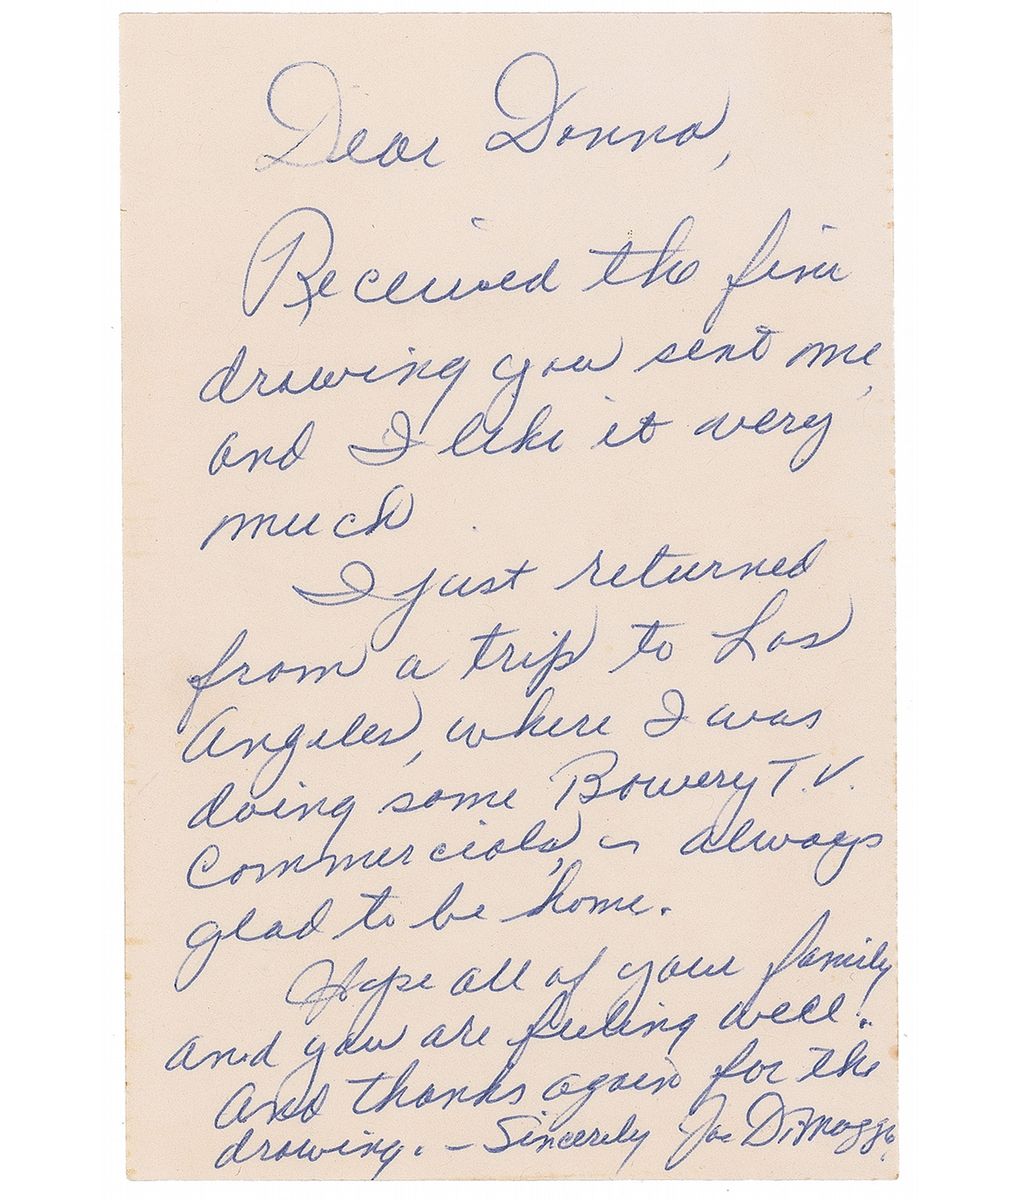 Dear Donna,
Received the fine
drawing you sent me,
and I like it very
much.
I just returned
from a trip to Los
Angeles, where I was
doing some Bowery T.V.
Commercials, – always
glad to be home.
Hope all of your family
and you are feeling well.
And thanks again for the
drawing. – Sincerely Joe DiMaggio.